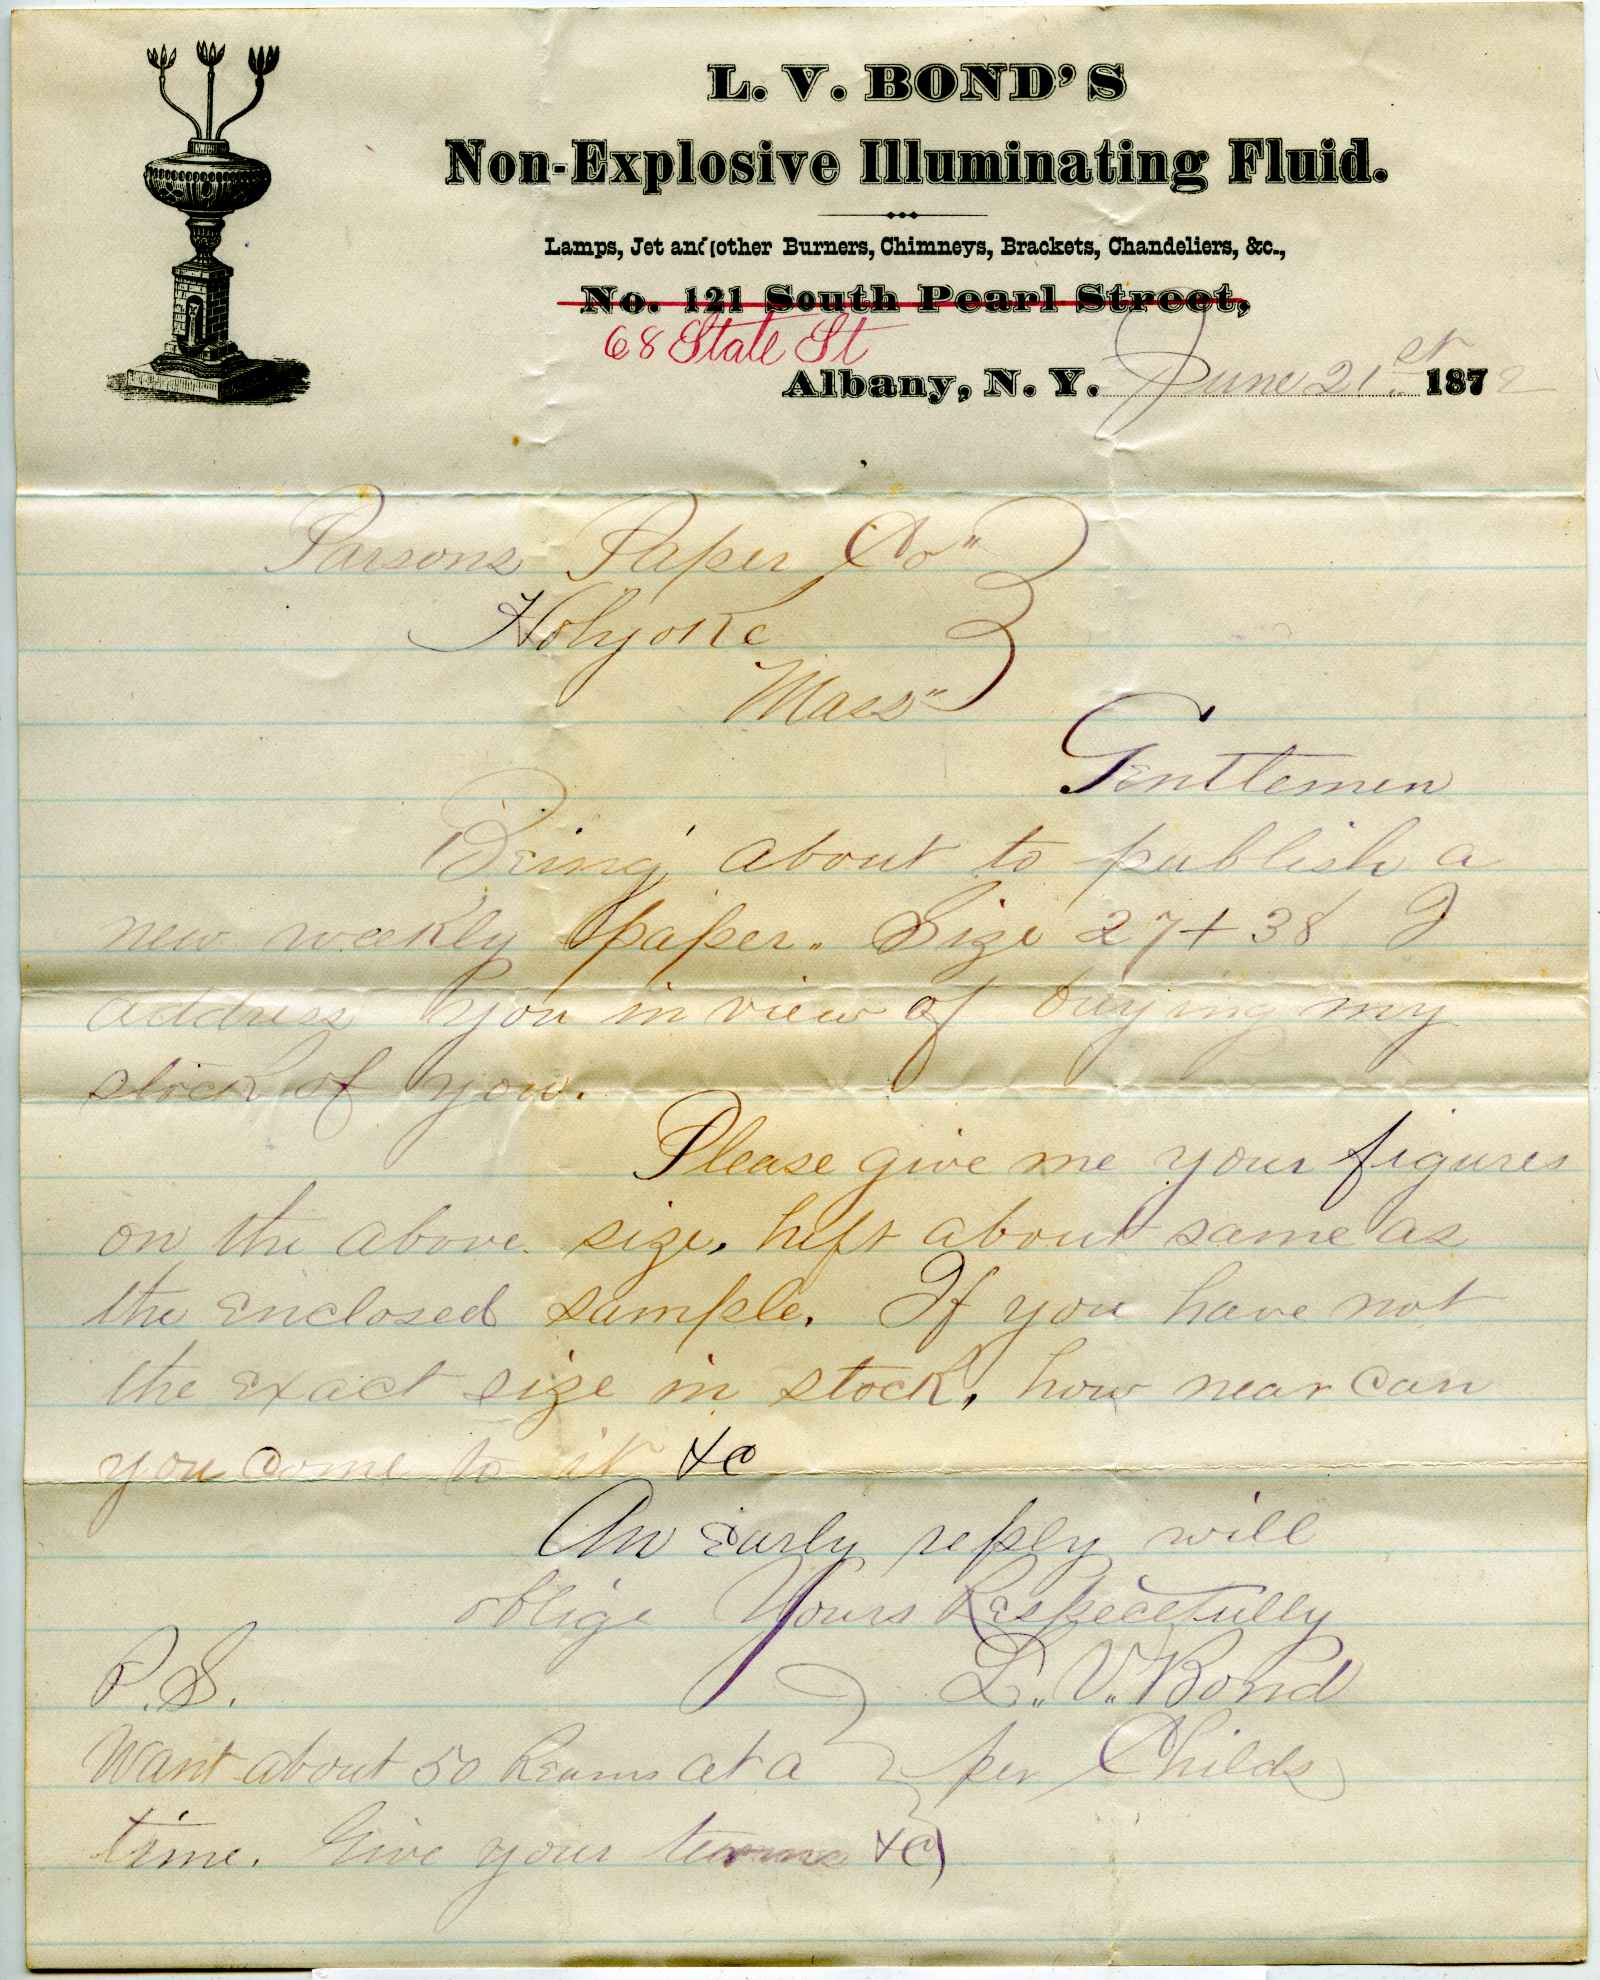 L. V. BOND'S
Non-Explosive Illuminating Fluid.
Lamps, Jet and other Burners, Chimneys, Brackets, Chandeliers, &c.,
No. 121 South Pearl Street,
68 State St
Albany, N. Y. June 21st 1872
Parsons Paper Co"
Holyoke
Mass"
Gentlemen
Being about to publish a
new weekly paper. Size 27+38 I
address you in view of buying my
stock of you.
Please give me your figures
on the above size, heft about same as
the enclosed sample. If you have not
the exact size in stock, how near can
you come to it &c
An early reply will
oblige Yours Respectfully
L. V. Bond
per Childs
P.S.
Want about 50 Reams at a
time. Give your terms &c